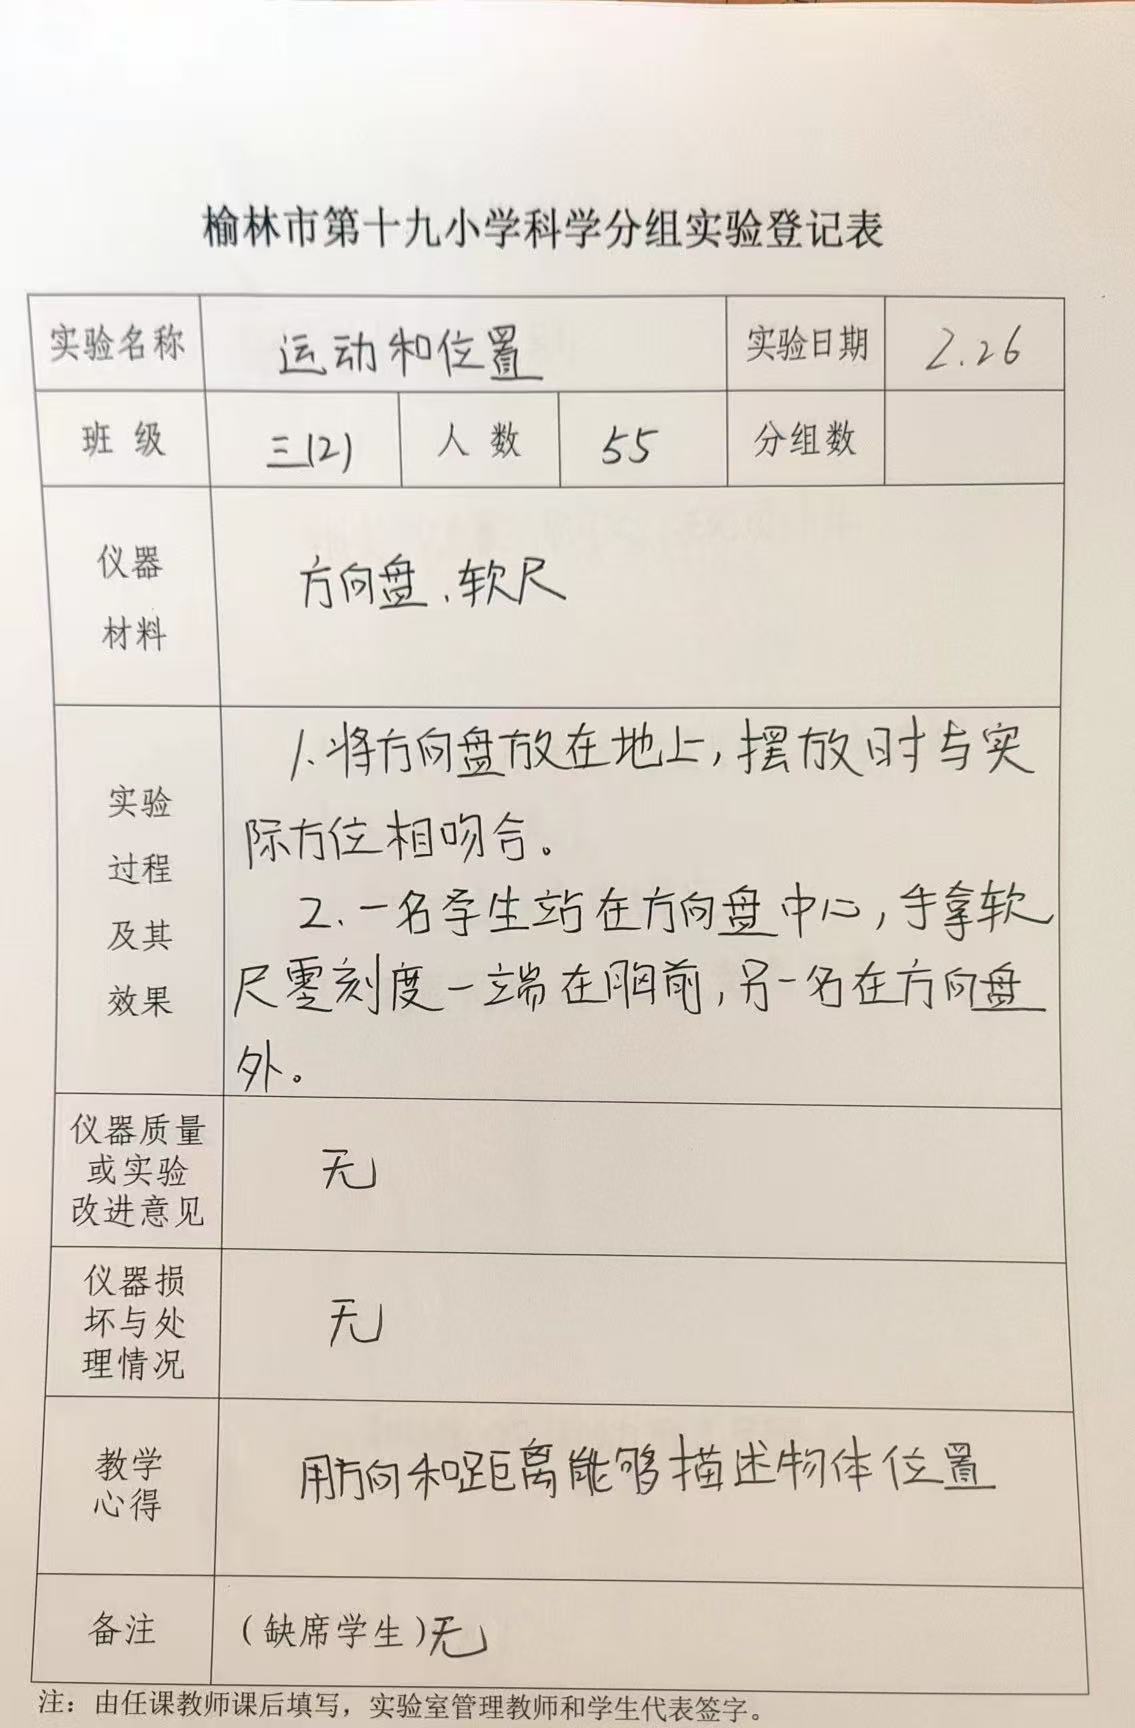 榆林市第十九小学科学分组实验登记表
实验名称 运动和位置 实验日期 2.26
班级 三(2) 人数 55 分组数
仪器
材料
方向盘、软尺
实验
过程
及其
效果
1.将方向盘放在地上,摆放时与实
际方位相吻合。
2.一名学生站在方向盘中心,手拿软
尺零刻度一端在胸前,另一名在方向盘
外。
仪器质量
或实验
改进意见
无
仪器损
坏与处
理情况
无
教学
心得
用方向和距离能够描述物体位置
备注 (缺席学生)无
注:由任课教师课后填写,实验室管理教师和学生代表签字。